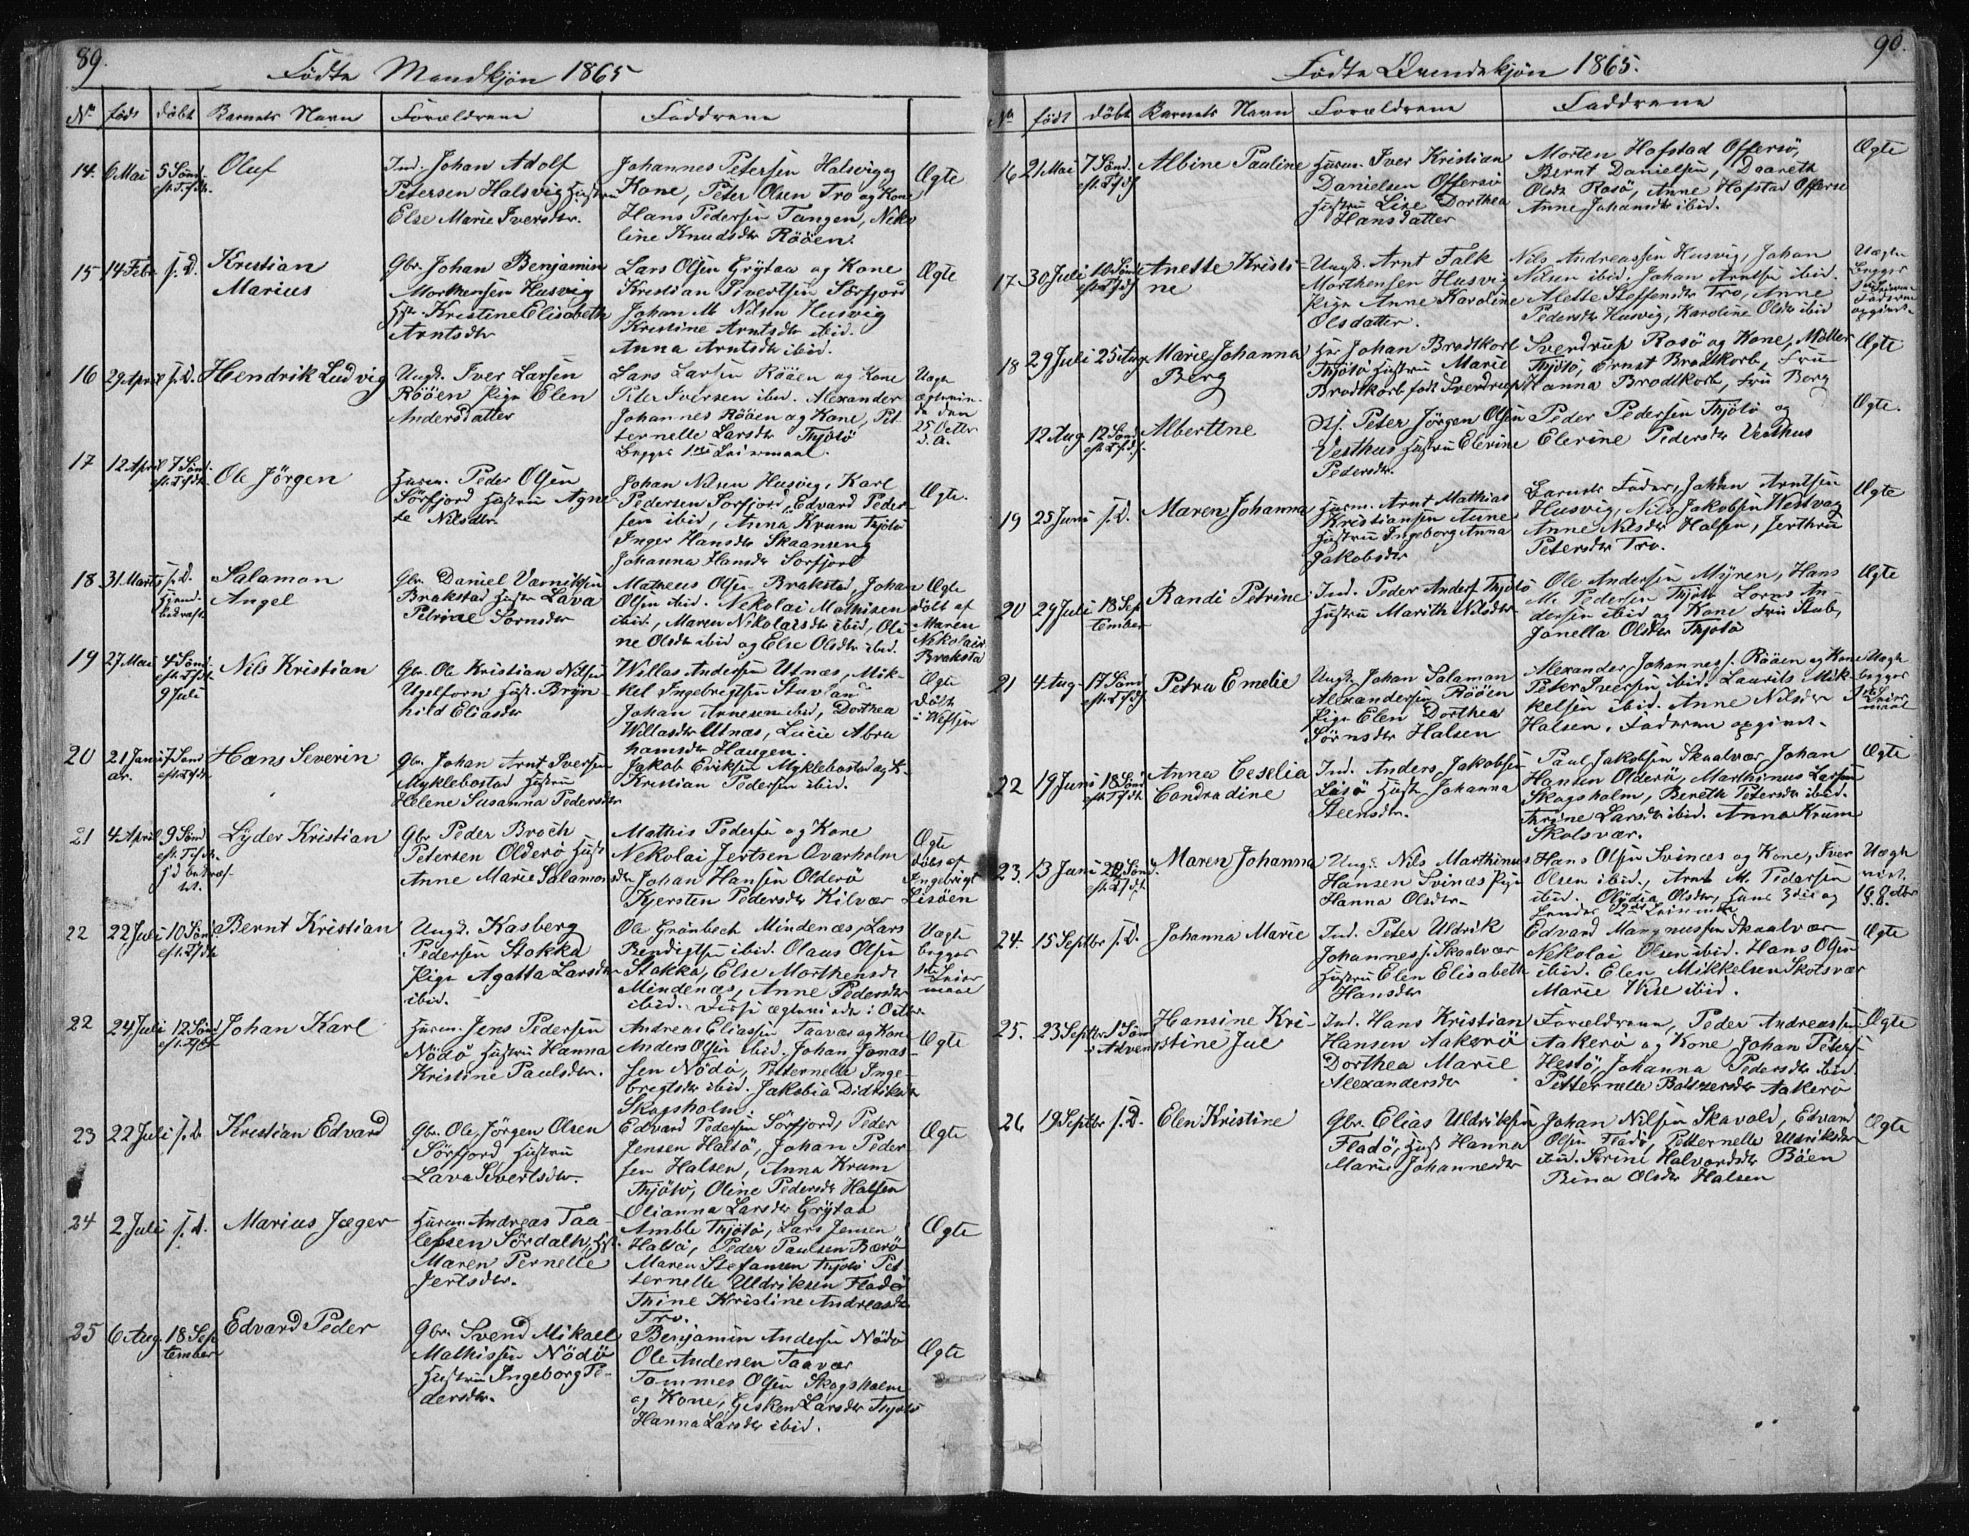 89.
Fødte Mandkjøn 1865
No født døbt Barnets Navn Forældrene Faddrene
14. 6 Mai 5 Sønd. eft. Tr. fdg. Oluf
Ind. Johan Adolf
Petersen Halsvig Hustru
Else Marie Iversdtr.
Johannes Petersen Halsvig og
Kone, Peter Olsen Tro og Kone
Hans Pedersen Tangen, Niko
line Knudsdtr Rööen.
Ægte
15 14 Febr s. D. Kristian
Marius
Gbr. Johan Benjamin
Morthensen Husvig
Hstr. Kristine Elisabeth
Arntsdtr
Lars Olsen Grytaa og Kone
Kristian Sivertsen Sörfjord
Johan M. Nilsen Husvig
Kristine Arntsdtr ibid.
Anna Arntsdtr ibid.
Ægte
16 29 April s. D. Hendrik Ludvig
Ungk. Iver Larsen
Rööen Pige Elen
Andersdatter
Lars Larsen Rööen og Kone
Peter Iversen ibid. Alexander
Johannes Rööen og Kone, Pet
ternelle Larsdtr Thjötö
begges 1ste Leiermaal.
Uægte
ægtevie
de den
25 Octbr
s. A.
17 12 April 7 Sönd. eft. Tr. fdg. Ole Jörgen
Husm. Peder Olsen
Sörfjord Hustru Agne
te Nilsdtr
Johan Nilsen Husvig, Karl
Pedersen Sörfjord, Edvard Peder
sen ibid, Anna Krum Thjötö
Inger Hansdtr Skaanseng
Johanna Hansdtr Sörfjord
Ægte.
18 31. Marts s. D.
hjem.
bekræft
Salamon
Angel
Gbr. Daniel
Brakstad Hustr Lava
Petrine Sörnsdtr
Matheus Olsen Brakstad, Johan
Olsen ibid. Nekolai Mathisen
ibid., Maren Nikolaisdtr ibid, Oli
ne Olsdtr ibid og Else Olsdtr ibid.
Ægte
döbt af
Maren
Nikolaisd
Braksta
19 27 Mai 4 Sönd. eft. Tr. fdg.
9 Juli
Nils Kristian
Gbr. Ole Kristian Nilsen
Ugelforn Hust. Bryn-
hild Eliasdtr
Willas Andersen Utnæs, Mik-
kel Ingebrigtsen Stavland
Johan Arnesen ibid, Dorthea
Willasdtr Utnæs, Lucie Abra
hamsdtr Haugen.
Ægte
Födt
i Wefsen
20 21 Janu
ar. 7 Sönd
eft. Tr. fdg.
Hans Severin
Gbr. Johan Arnt Iversen
Myklebostad Hustru
Helene Susanna Pedersdtr
Jakob Eriksen Myklebostad og K.
Kristian Pedersen ibid.
21 4 April 9 Sönd
eft. Tr. fdg.
Lyder Kristian
Gbr Peder Broch
Petersen Olderö Hust
Anne Marie Salamonsdtr
Mathis Pedersen og Kone
Nekolai Jertsen Ovarholm
Johan Hansen Olderö
Kjersten Pedersdtr Kilvær
Ægte
döbt af
Ingebrigt
Lisöen
22 22 Juli 10 Sönd
eft. Tr. fdg.
Bernt Kristian
Ungk. Kasberg
Pedersen Stokka
Pige Agatta Larsdtr
ibid.
Ole Grönbech Mindenæs, Lars
Bendigtsen ibid. Olaus Olsen
Stokka, Else Morthensdtr
Mindenæs, Anne Pedersdtr
ibid. Disse ægteviede i Octbr
Uægte
begges
1ste Leier
maal
22 24 Juli 12 Sönd
eft. Tr. fdg.
Johan Karl
Husm. Jens Pedersen
Nödö Hustru Hanna
Kristine Paulsdtr.
Andreas Eliassen Taavær og Kone
Anders Olsen ibid. Johan Jonas-
sen Nödö, Petternelle Inge-
brigtsdtr ibid. Jakobia Didriksdtr
Skogsholm
Ægte
23 22 Juli s. D. Kristian Edvard
Gbr. Ole Jörgen Olsen
Sörfjord Hustru
Lava Sivertsdtr.
Edvard Pedersen Sörfjord, Peder
Jensen Halsö, Johan Peder
sen Halsen, Anna Krum
Thjötö, Oline Pedersdtr Halsen
Olianna Larsdtr Grytaa
Ægte
24 2 Juli s. d. Marius Jæger
Husm Andreas Taa-
lefsen Sördalh, Hst.
Maren Pernelle
Jertsdtr.
Amble Thjötö, Lars Jensen
Halsö, Peder Paulsen Bærö
Maren Stefansen Thjötö Pet
ternelle Uldriksen Fladö
Thine Kristine Andreasdtr
Tro.
Ægte
25 6 Aug. 18 Sep
tember
Edvard Peder
Gbr. Svend Mikael
Mathissen Nödö
Hustru Ingeborg Pe-
dersdtr.
Benjamin Andersen Nödö
Ole Andersen Taavær
Tommes Olsen Skogsholm
og Kone, Gisken Larsdtr Thjötö
Hanna Larsdtr ibid.
Ægte
90.
Fødte Qvindekjøn 1865.
No født døbt Barnets Navn Forældrene Faddrene
16 21 Mai 7 Sönd.
eft. Tr. fdg
Albine Pauline
Husm. Iver Kristian
Danielsen Offersö
Hustru Lise Dorthea
Hansdatter
Morten Hofstad Offersö,
Bernt Danielsen, Daareth
Olsdtr Rosö, Anne Hofstad Offersö
Anne Johansdtr ibid.
Ægte
17 30 Juli 10 Sönd
eft. Tr. fdg
Anette Kristi
ne
Ungk. Arnt Falk
Morthensen Husvig
Pige Anne Karoline
Olsdatter.
Nils Andreassen Husvig, Johan
Nilsen ibid, Johan Arntsen ibid.
Alette Steffensdtr Tro, Anne
Pedersdtr Husvig, Karoline Olsdtr ibid
Uægte
begges
1ste Leierm
Faderen
opgivet.
18 29 Juli 25 Aug. Marie Johanna
Berg
Hr Johan Brodtkorb
Thjötö Hustru Marie
Brodtkorb født Sverdrup
Sverdrup Rosö og Kone, Möller
Thjötö, Ernst Brodtkorb, Fru
Hanna Brodtkorb, Fru Berg
Ægte
12 Aug 12 Sönd
eft. Tr. fdg.
Albertine
Stj. Peter Jörgen Olsen
Vesthus Hustru Elevine
Pedersdtr.
Peder Pedersen Thjötö og
Elevine Pedersdtr Vesthus
Ægte.
19 25 Juni s. D. Maren Johanna
Husm. Arnt Mathias
Kristiansen Aune
Hustru Ingeborg Anna
Jakobsdtr
Barnets Fader, Johan Arntsen
Husvig, Nils Jakobsen Westvag
Anne Nilsdtr Halsen, Jerthru
Petersdtr Tro.
Ægte
20 29 Juli 18 Sep
tember
Randi Petrine
Ind. Peder Anders. Thjötö
Hustru Marith Nilsdtr
Ole Andersen Myren, Hans
M. Pedersen Thjötö Lorns An
dersen ibid og Kone Fru Stub,
Jonella Olsdtr Thjötö
Ægte
21 4 Aug 17 Sönd
eft. Tr. fdg.
Petra Emelie
Ungk. Johan Salamon
Alexandersen Rööen
Pige Elen Dorthea
Sörnsdtr Halsen
Alexander Johannes s. Rööen og Kone
Peter Iversen ibid. Laurits Mik-
kelsen ibid. Anne Nilsdtr
Halsen. Faderen opgivet.
Uægte
begges
1ste Leier
maal
22 19 Juni 18 Sönd
eft. Tr. fdg.
Anna Ceselia
Condradine
Ind. Anders Jakobsen
Lisö Hust Johanna
Steensdtr.
Paul Jakobsen Skaalvær Johan
Hansen Olderö, Marthinus Larsen
Skogsholm, Bereth Petersdtr ibid.
Thrine Larsdtr ibid. Anna Krum
Skolsvær.
Ægte
23. 13 Juni 20 Sönd.
eft. Tr. fdg.
Maren Johanna
Ungk. Nils Marthinus
Hansen Svines Pige
Hanna Olsdtr.
Hans Olsen Svinæs og Kone, Iver
Olsen ibid., Arnt M. Pedersen
ibid. Olydia Olsdtr, Hans 3die og
hendes 2det Leiermaal
Uægte
18 Octbr
24. 15 Septbr s. D. Johanna Marie
Ind. Peter Uldrik
Johannes s. Skaalvær
Hustru Elen Elisabeth
Hansdtr
Edvard Mangnussen Skaalvær
Nekolai Olsen ibid. Hans Olsen
ibid. Elen Mikkelsen Skolsvær
Marie Wese ibid.
Ægte
25. 23 Septbr 1 Sönd
i Advent
Hansine Kri-
stine Jul
Ind. Hans Kristian
Hansen Aakerö
Dorthea Marie
Alexandersdtr
Forældrene, Peder Andreassen
Aakerö og Kone Johan Peters.
Hestö, Johanna Pedersdtr ibid.
Petternelle Baltzersdtr Aakerö
Ægte
26 19 Septbr s. D. Elen Kristine
Gbr. Elias Uldriksen
Fladö, Hust Hanna
Marie Johannesdtr
Johan Nilsen Skavold, Edvard
Olsen Fladö, Petternelle Uldriksdtr
ibid. Serine Halvordsdtr Böen
Rina Olsdtr Halsen
Ægte